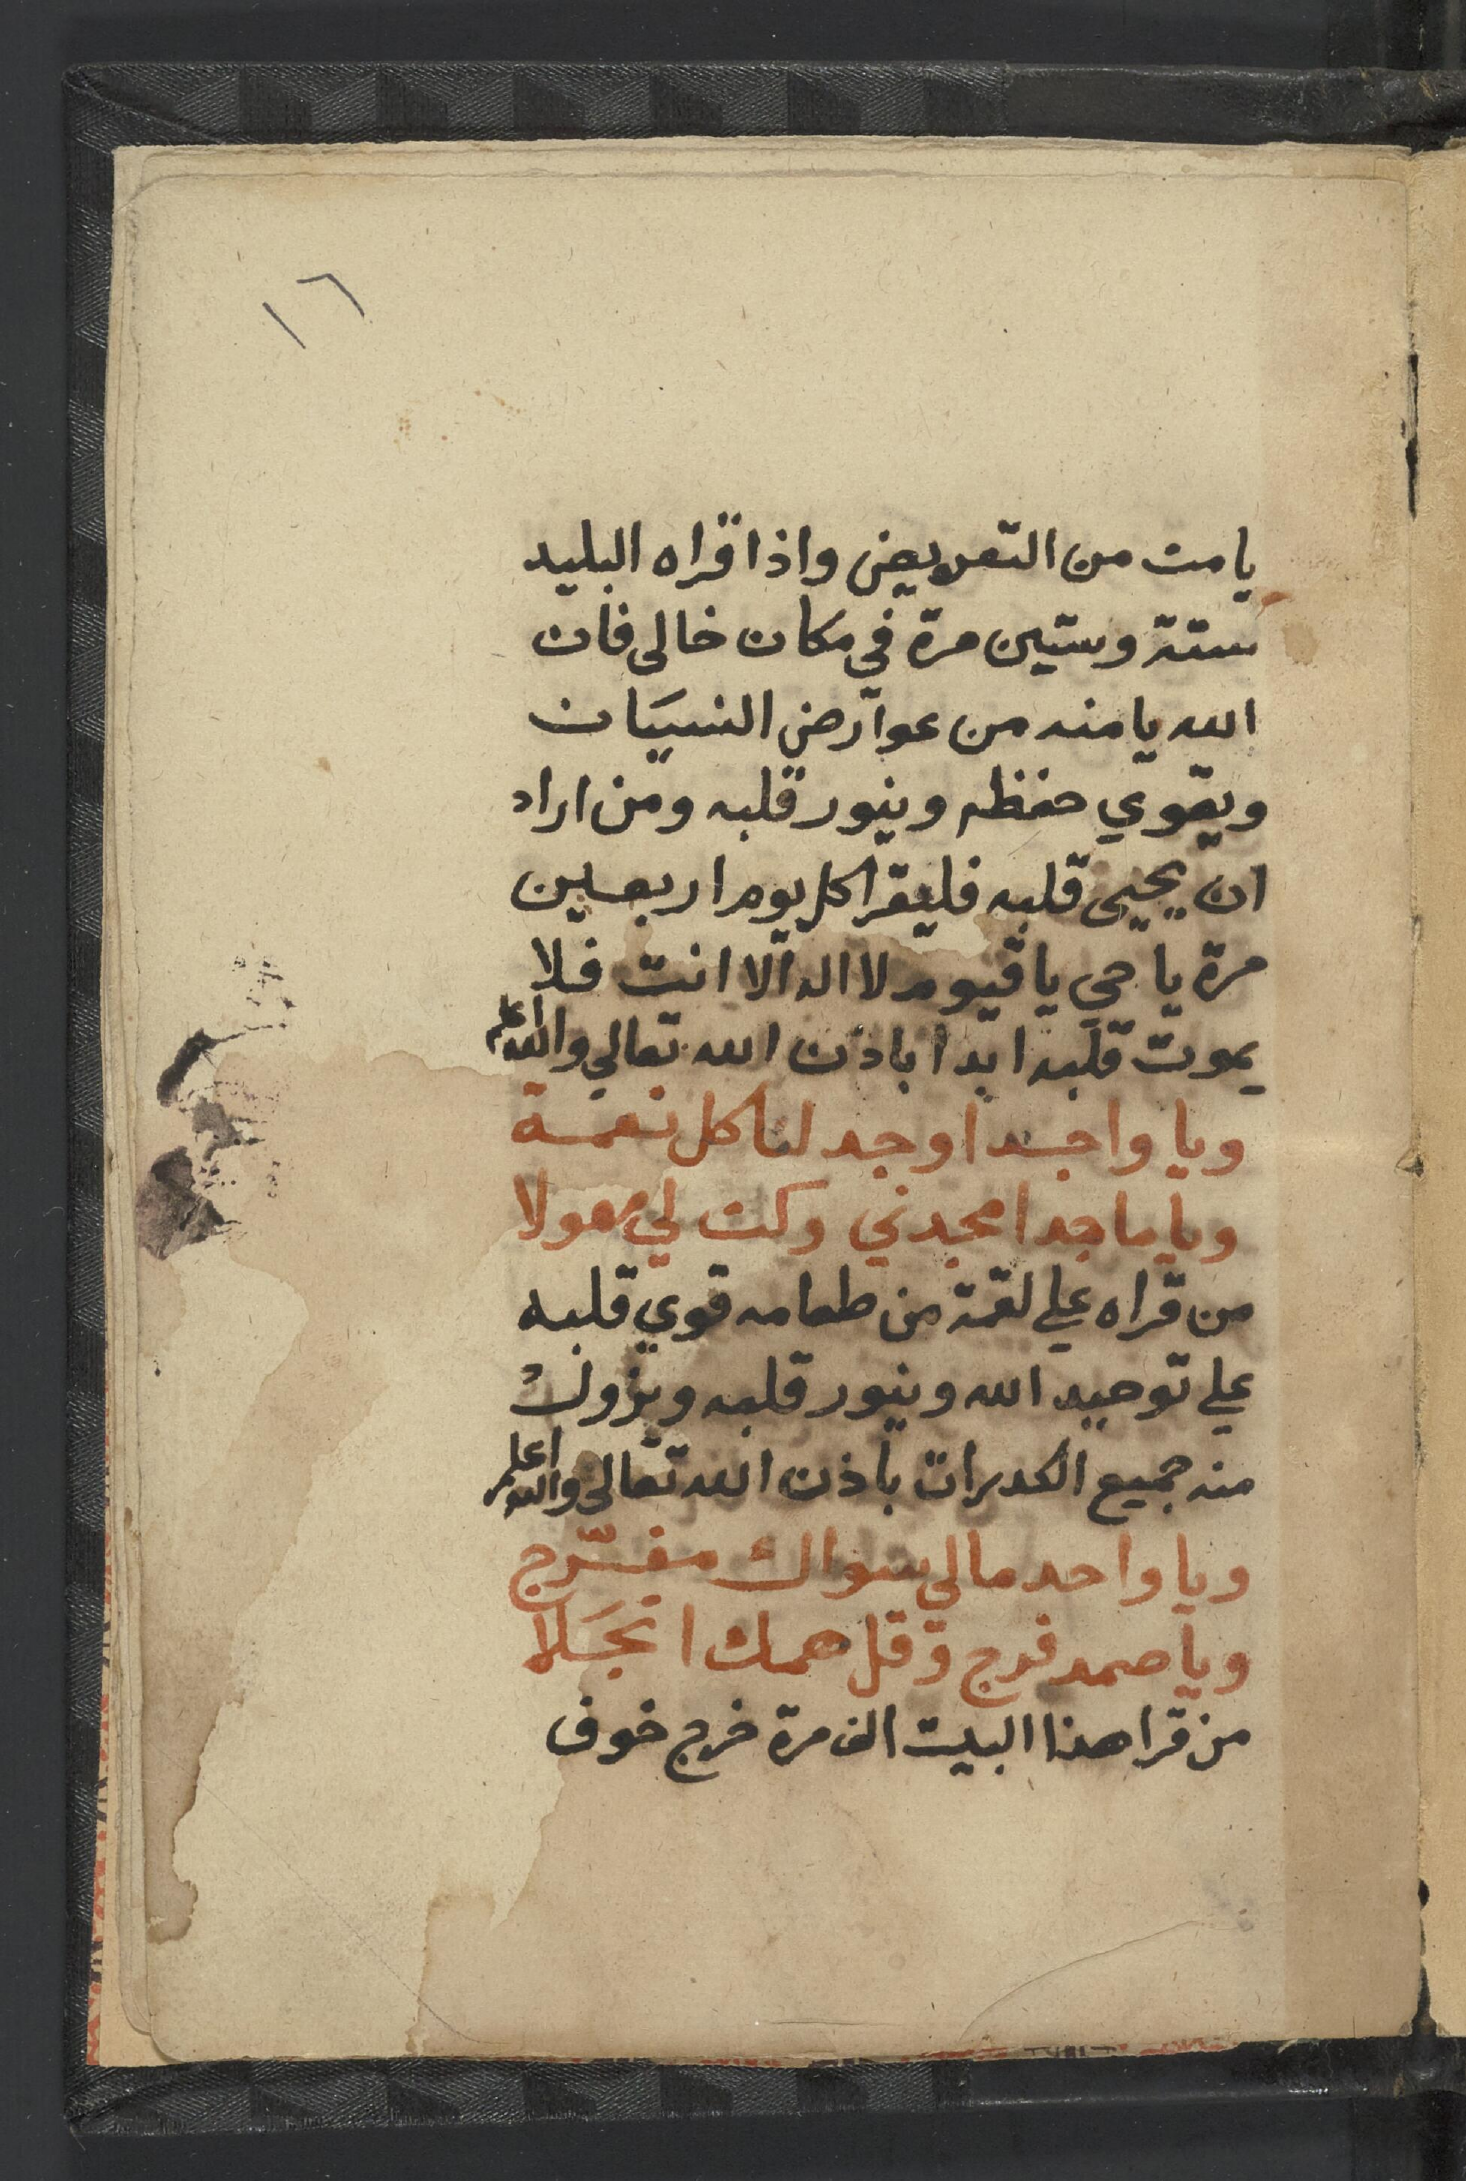 ١٦
يامن من التعريض واذا قراه البليد
ستة وستين مرة في مكان خالى فان
الله يامنه من عوارض النسيان
ويقوي حفظه وينور قلبه ومن اراد
ان يحيى قلبه فليقرا كل يوم اربعين
مرة يا حي يا قيوم لا اله الا انت فلا
يموت قلبه ابدا باذن الله تعالي والله اعلم
ويا واجد اوجد لنا كل نعمة
ويا ماجد امجدني وكن لي مهولا
من قراه علي لقمة من طعامه قوي قلبه
علي توحيد الله وينور قلبه ويزول
منه جميع الكدرات باذن الله تعالى والله اعلم
ويا واحد مالي سواك مفرج
ويا صمد فرج وقل همك انجلا
من قرا هذا البيت الف مرة خرج خوف